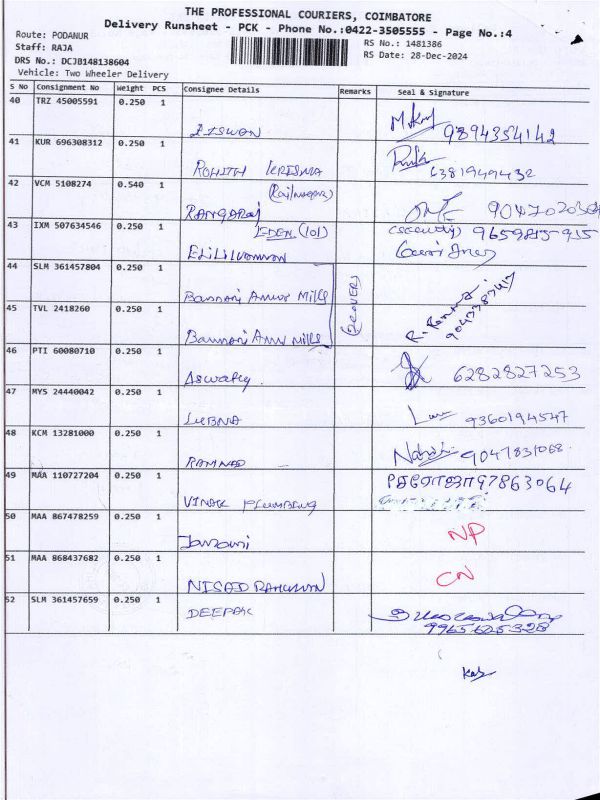 THE PROFESSIONAL COURIERS, COIMBATORE
Delivery Runsheet - PCK - Phone No.:0422-3505555 - Page No.:4
Route: PODANUR
RS No.: 1481386
Staff: RAJA
RS Date: 28-Dec-2024
DRS No.: DCJB148138604
Vehicle: Two Wheeler Delivery
S No Consignment No Weight PCS Consignee Details Remarks Seal & Signature
40 TRZ 45005591 0.250 1
9894354142
41 KUR 696308312 0.250 1
ROHITH KRISNA 6381949432
42 VCM 5108274 0.540 1
RANGARAJ
43 IXM 507634546 0.250 1 EDEN (101) (security) 9659815915
44 SLM 361457804 0.250 1
Bannari Amm Mills RECOVERY
45 TVL 2418260 0.250 1
Bannari Amm Mills
46 PTI 60080710 0.250 1
Aswathy 6282827253
47 MYS 24440042 0.250 1
LUBNA 9360194547
48 KCM 13281000 0.250 1
RAMNAD 9047831068
49 MAA 110727204 0.250 1 97863064
VINAK PLUMBING
50 MAA 867478259 0.250 1
NP
51 MAA 868437682 0.250 1
NISAD RAHUMAN CN
52 SLM 361457659 0.250 1 DEEPAK
9965625328